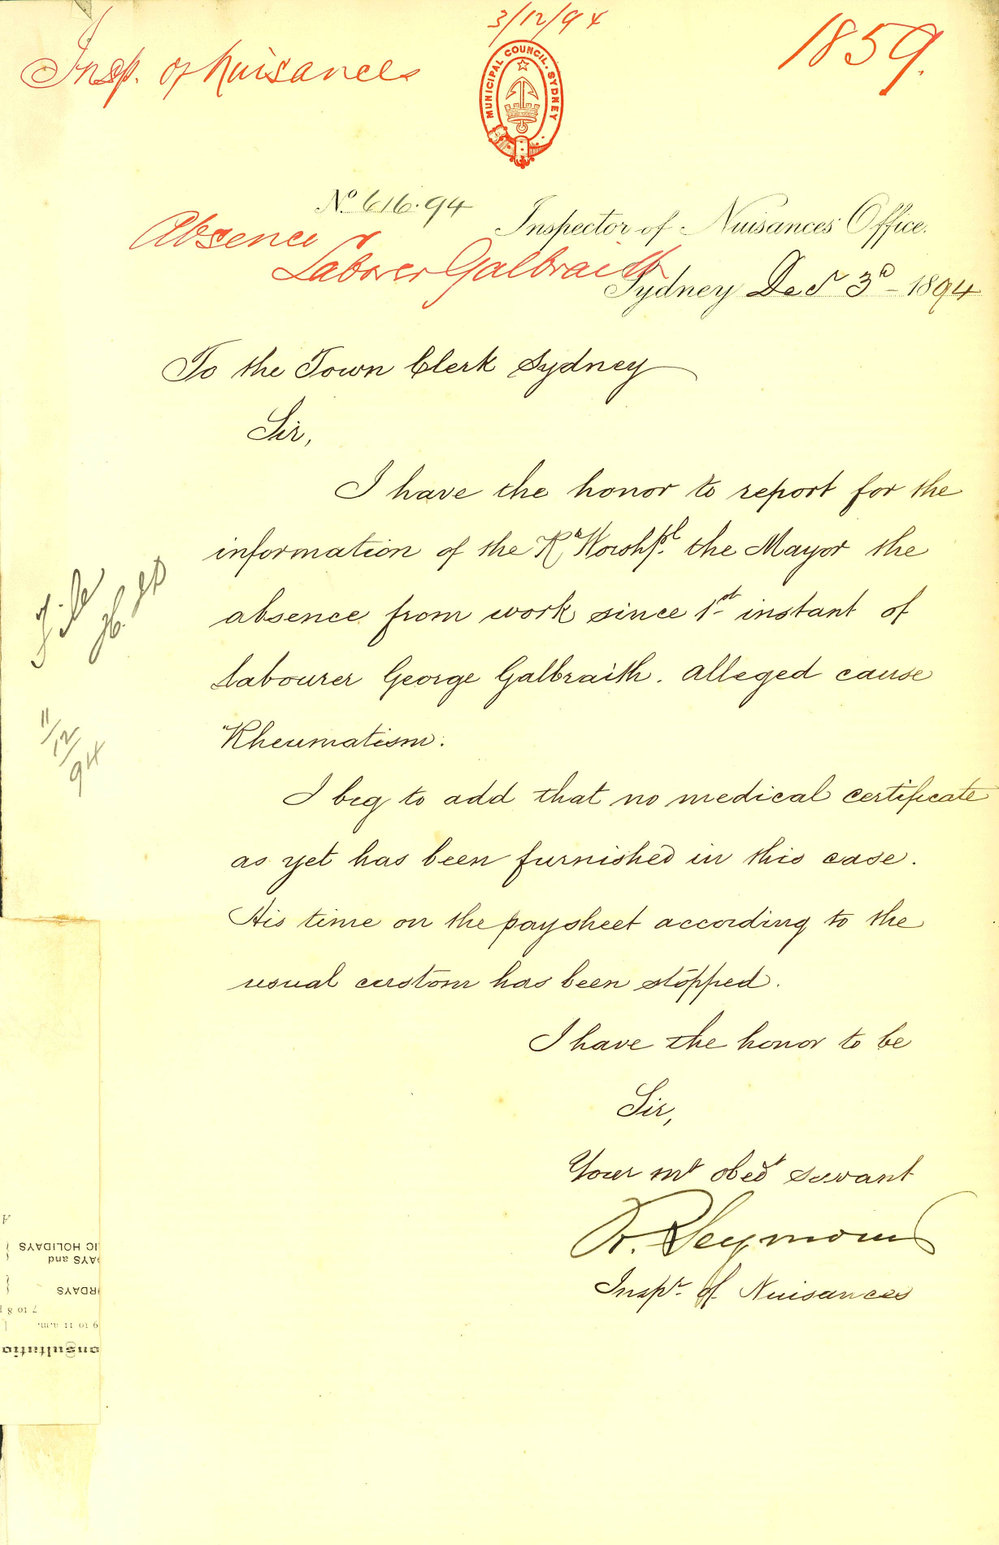 3/12/94
Insp. of Nuisances
1859.
MUNICIPAL COUNCIL. SYDNEY
No. 616.94
Inspector of Nuisances' Office.
Absence
Laborer Galbraith
Sydney Decr 3d 1894
To the Town Clerk Sydney
Sir,
I have the honor to report for the
information of the Rt Worshpl. the Mayor the
absence from work since 1st instant of
Labourer George Galbraith. Alleged cause
"Rheumatism.
I beg to add that no medical certificate
as yet has been furnished in this case.
His time on the paysheet according to the
usual custom has been stopped.
I have the honor to be
Sir,
Your mt obedt servant
R. Seymour
Inspr. of Nuisances
File
11/12/94
onsultatio
9 to 11 a.m.
7 to 8 p
RDAYS
AYS and
IC HOLIDAYS